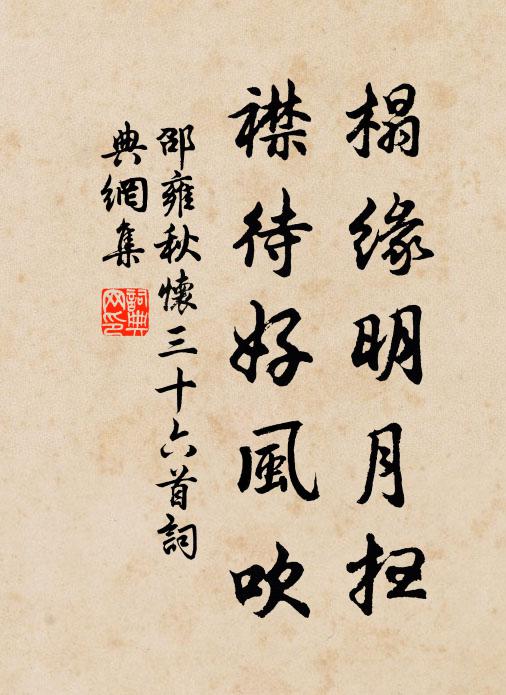 榻緣明月
襟待好風吹
邵雍秋懷三十六首詞
典網集
詞典
网印